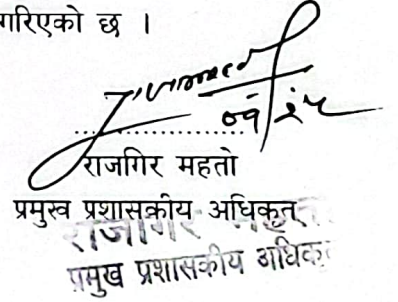 गरिएको छ ।
राजगिर महतो
प्रमुख प्रशासकीय अधिकृत
राजगिर
प्रमुख प्रशासकीय अधिकृत